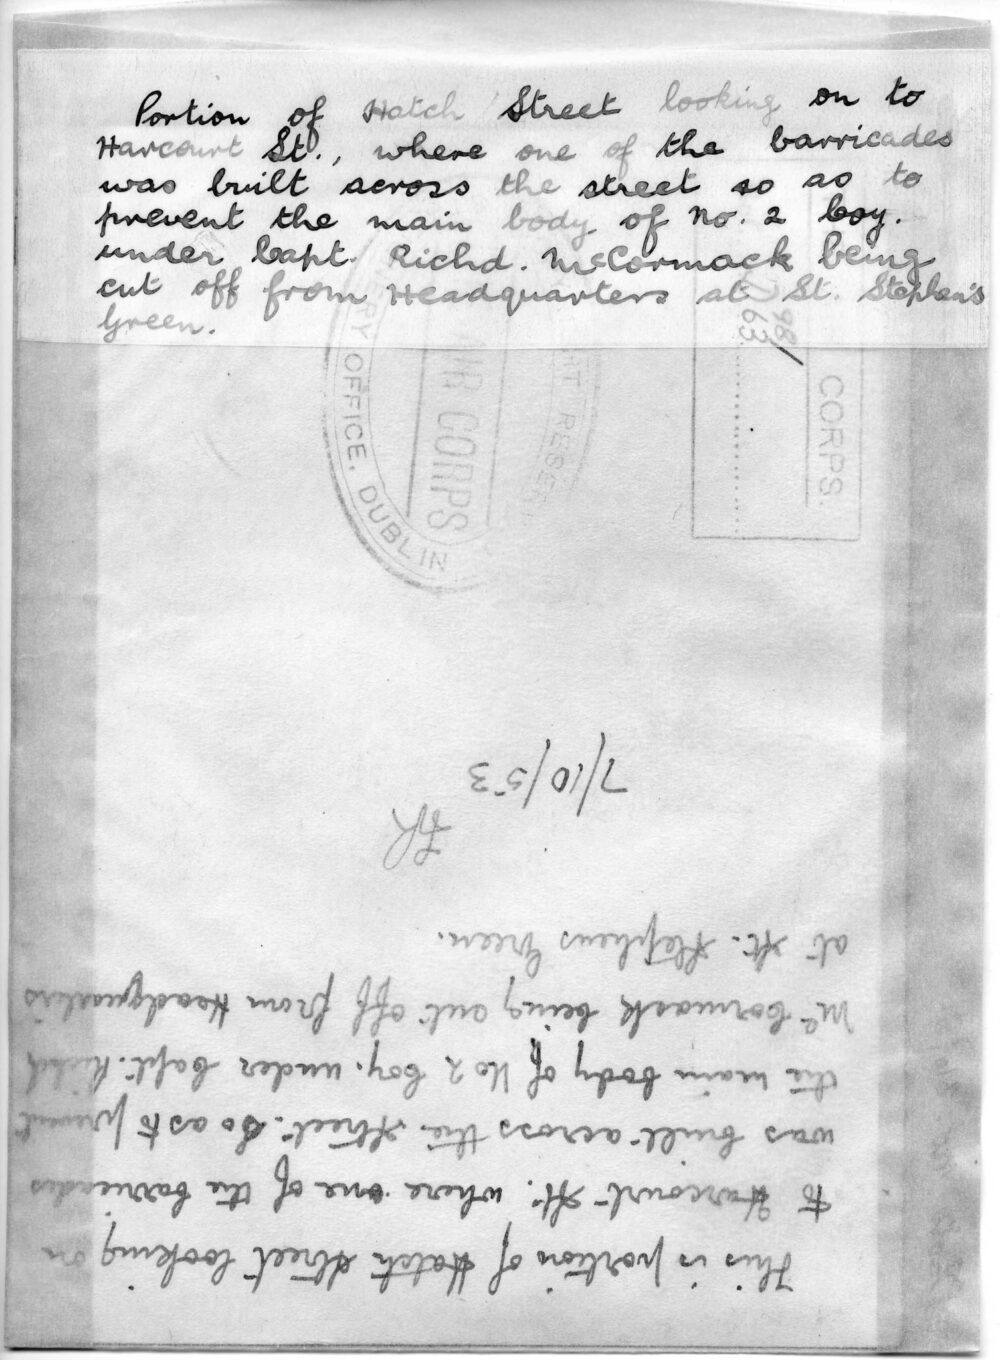 Portion of Hatch Street looking on to
Harcourt St., where one of the barricades
was built across the street so as to
prevent the main body of No. 2 Coy.
under Capt. Richd. McCormack being
cut off from Headquarters at St. Stephen's
Green.
RY OFFICE, DUBLIN
AIR CORPS
HT RESER
63
CORPS.
7/10/53
at St. Stephens Green.
Mc Cormack being cut off from Headquarters
the main body of No 2 Coy. under Capt. Richd
was built across the street. So as to prevent
to Harcourt St. where one of the barricades
This is portion of Hatch Street looking on